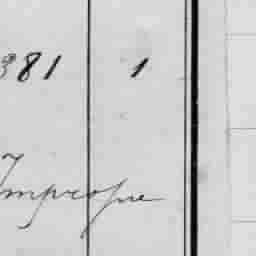 381 1
Impropre